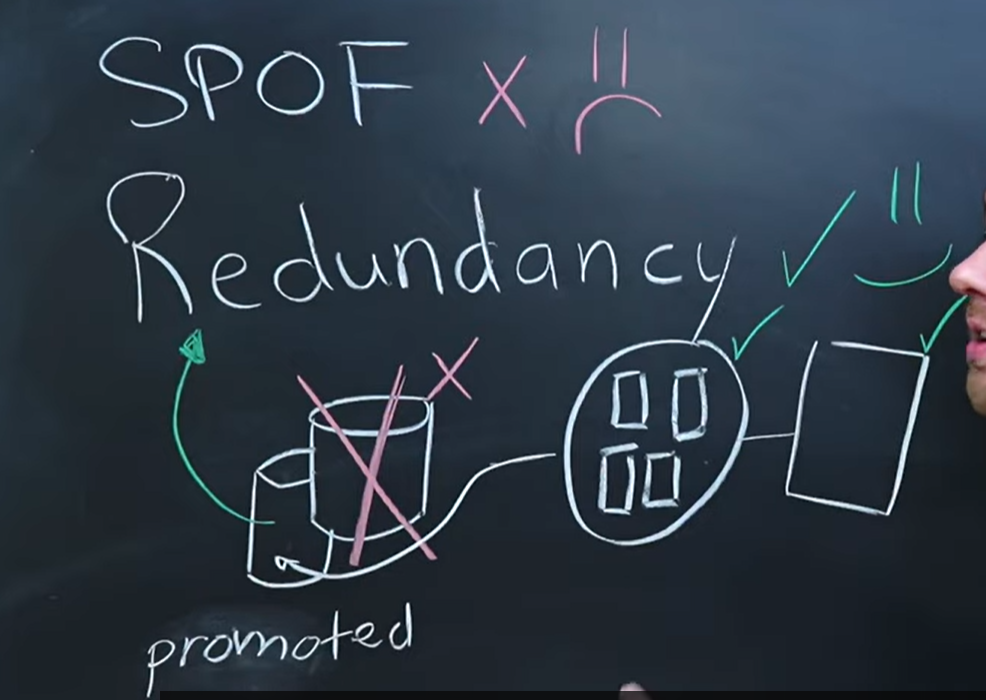 SPOF
Redundancy
promoted